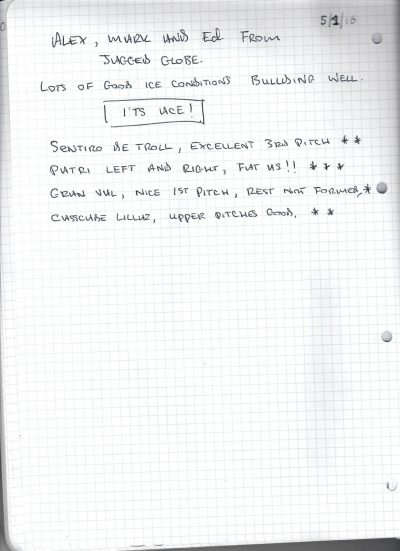 5/1/16
ALEX, MARK AND ED FROM
JAGGED GLOBE.
LOTS OF GOOD ICE CONDITIONS BUILDING WELL.
I'TS ICE!
SENTIRO DE TROLL, EXCELLENT 3RD PITCH * *
PATRI LEFT AND RIGHT, FAT AS!! * * *
GRAN VAL, NICE 1ST PITCH, REST NOT FORMED, *
CASSCADE LILLAZ, UPPER PITCHES GOOD. * *